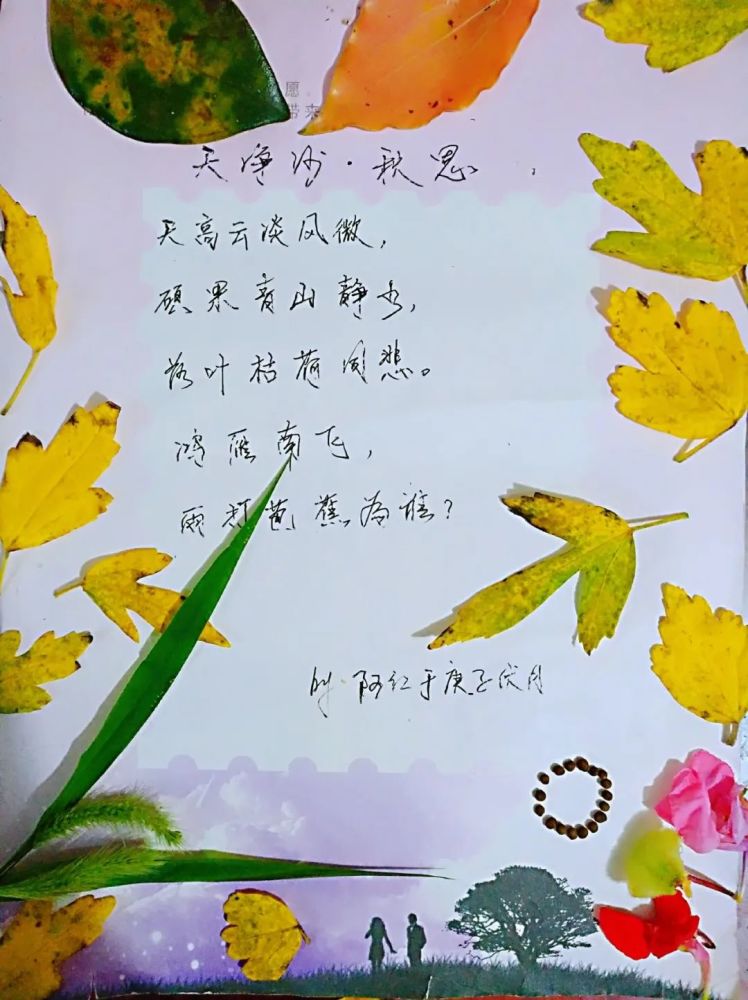 愿
带来
天净沙·秋思
天高云淡风微,
硕果青山静水,
落叶枯荷悲。
鸿雁南飞,
雨打芭蕉为谁?
阿红于庚子月